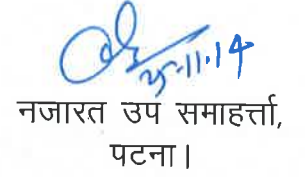 25.11.14
नजारत उप समाहर्त्ता,
पटना।